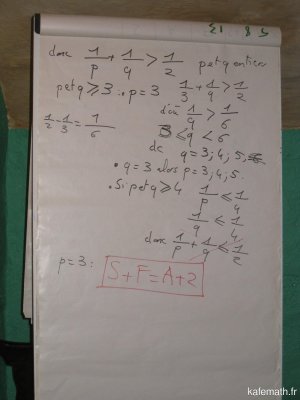 donc 1/p + 1/q > 1/2 p et q entiers
p et q ≥ 3 : • p = 3 1/3 + 1/q > 1/2
1/2 - 1/3 = 1/6
d'où 1/q > 1/6
3 ≤ q < 6
dc q = 3; 4; 5;
• q = 3 alors p = 3; 4; 5.
• Si p et q ≥ 4 1/p ≤ 1/4
1/q ≤ 1/4
donc 1/p + 1/q ≤ 1/2
p = 3 :
S + F = A + 2
kafemath.fr